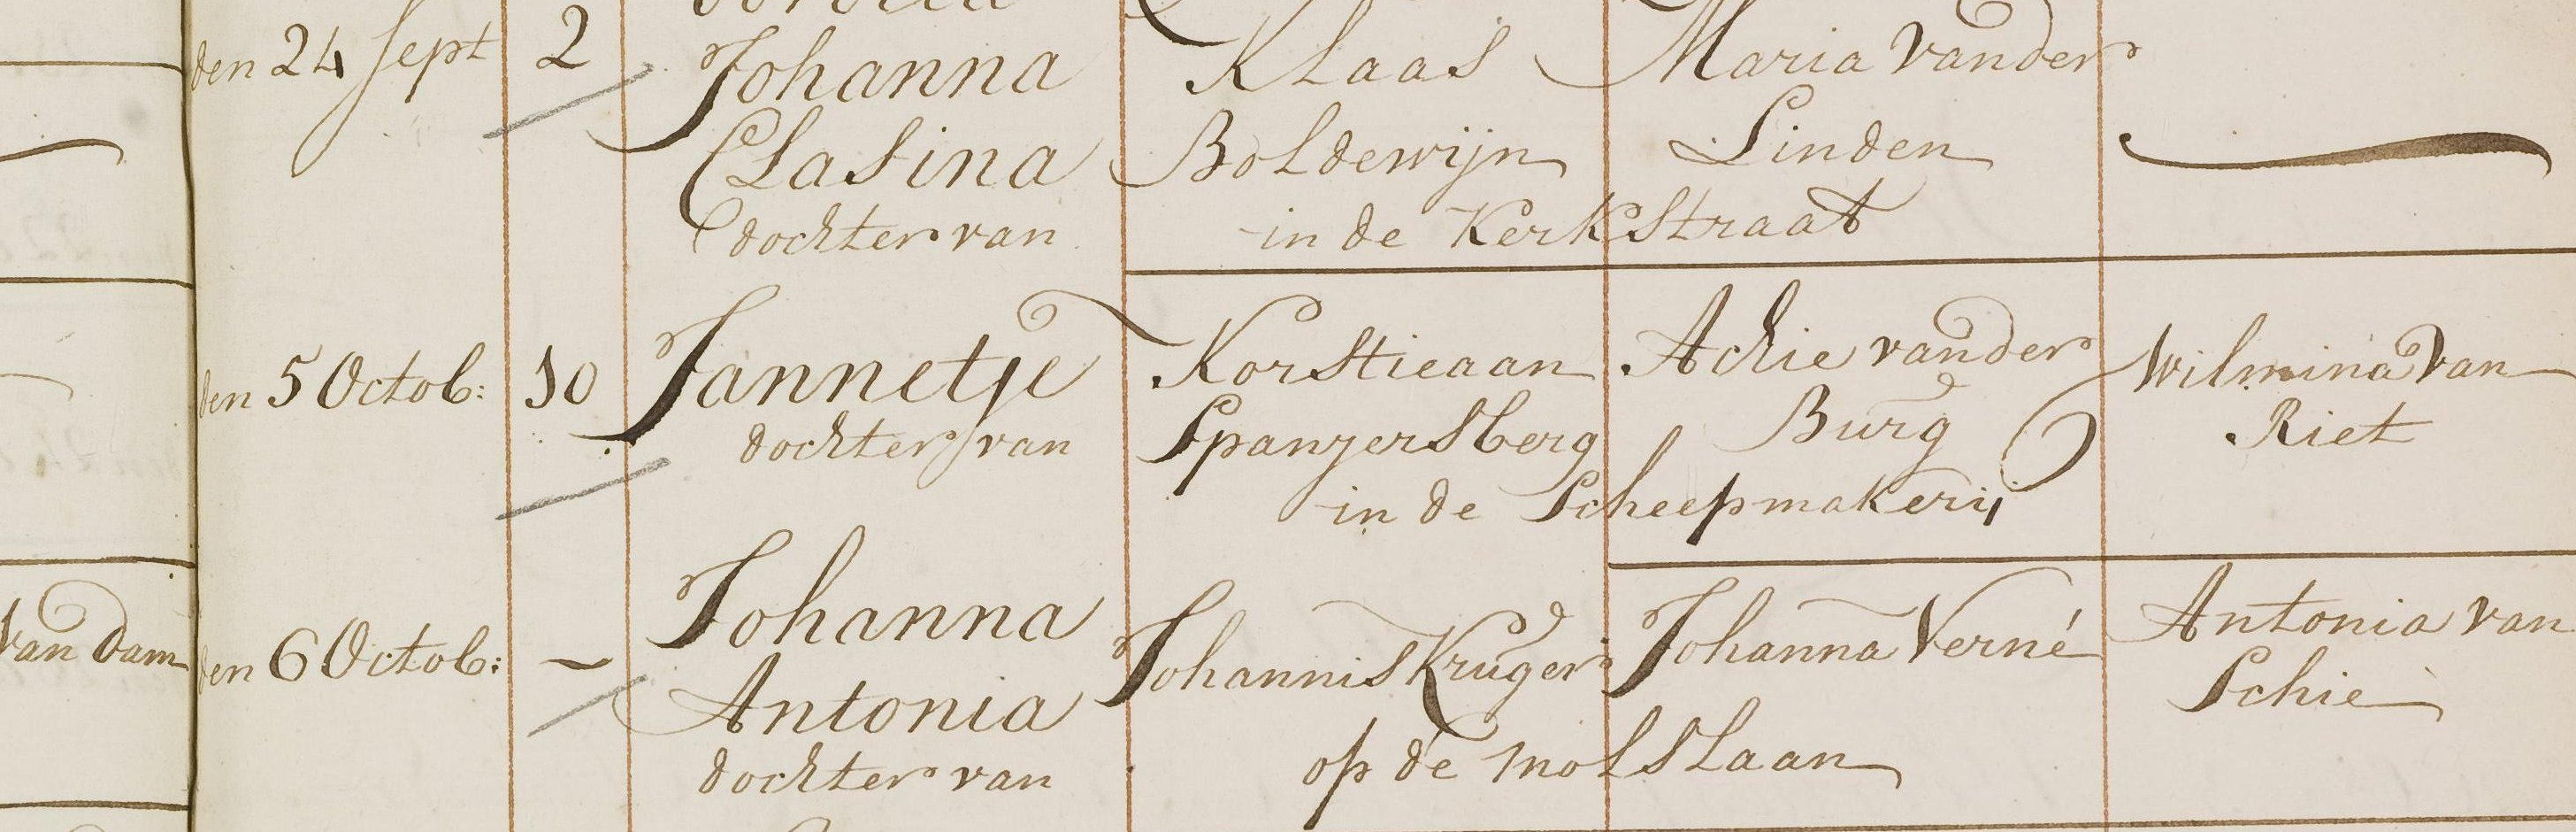 den 24 Sept 2 Johanna Klaas Maria vander
Clasina Boldewijn Linden
dochter van in de Kerkstraat
den 5 Octob: 10 Jannetje Korstieaan Achie vander Wilmina van
dochter van Spanjersberg Burg Riet
in de Scheepmakerij
van Dam den 6 Octob: – Johanna Johannis Kruger Johanna Verné Antonia van
Antonia Schie
dochter van op de molslaan